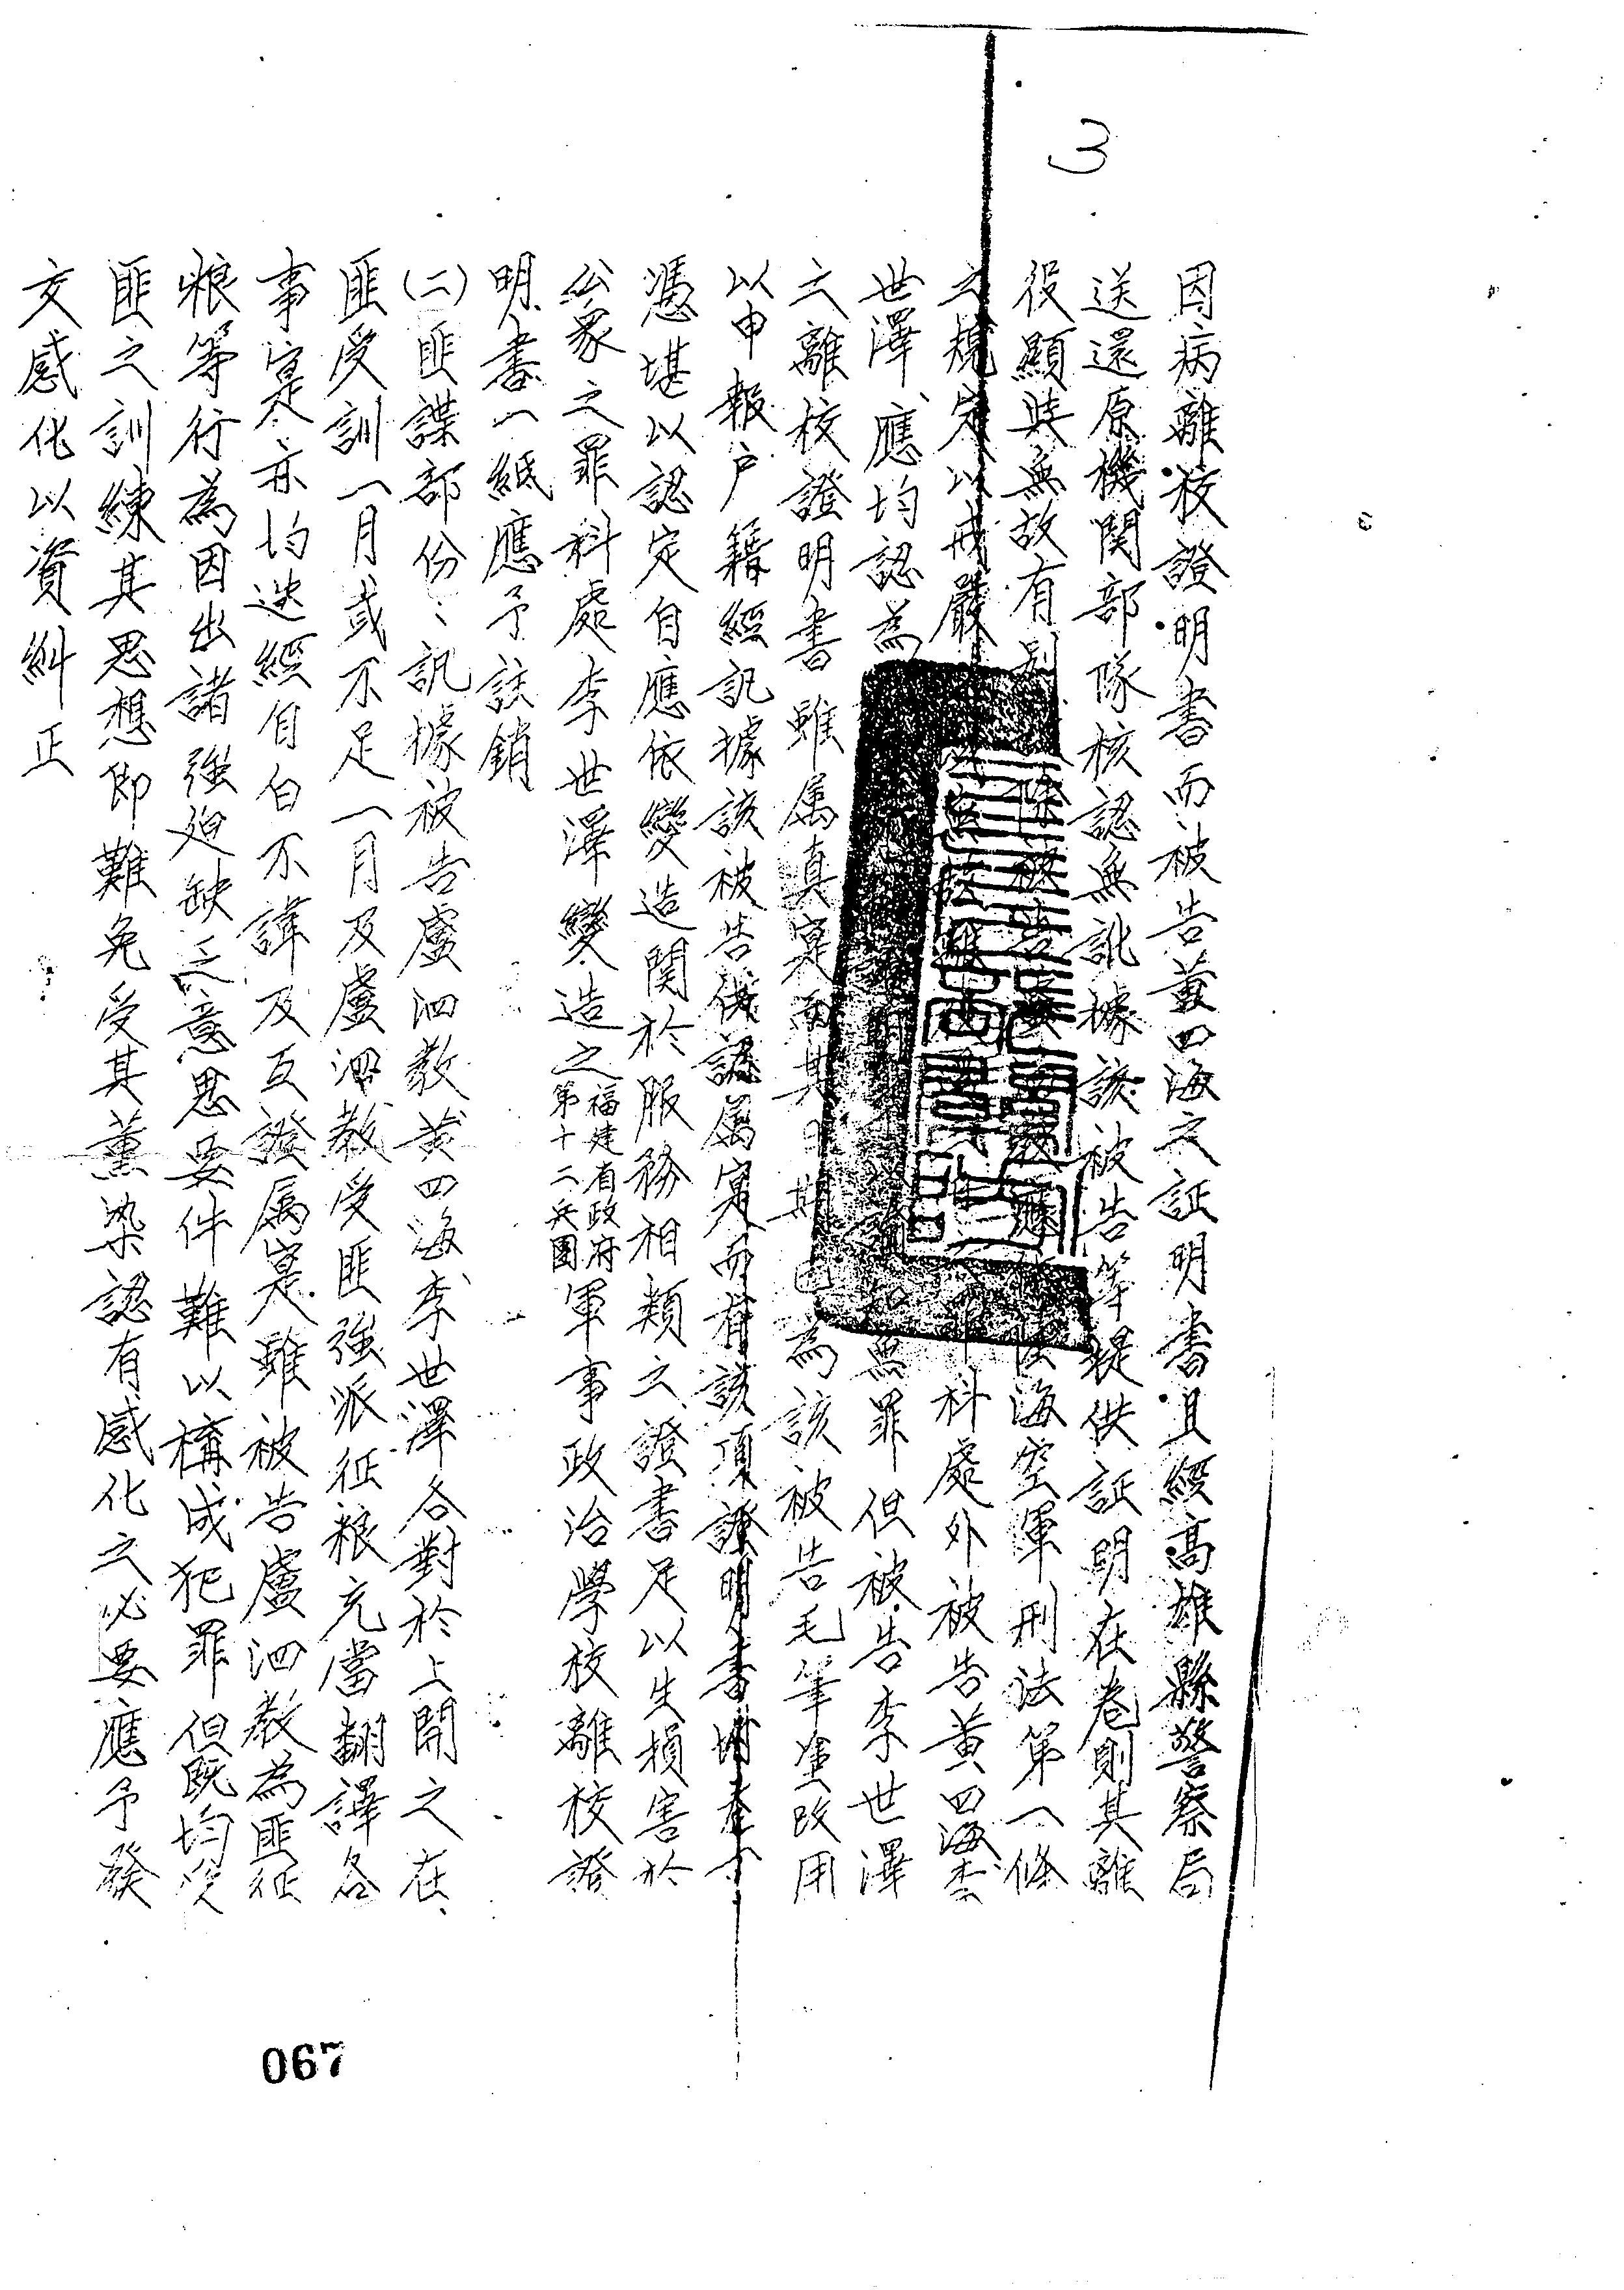 3
因病離校證明書而被告黃四海之証明書且經高雄縣警察局
送還原機関部隊核認無訛據該被告等提供証明在卷則其離
役顯與無故有別 除被告 海空軍刑法第一條
之規定以戒嚴 科處外被告黃四海李
世澤應均認為 無罪但被告李世澤
之離校證明書雖属真實而其日期 為該被告毛筆塗改用
以申報户籍經訊據該被告供認属實而有該項證明書附卷可
憑堪以認定自應依變造関於服務相類之證書足以生損害於
公眾之罪科處李世澤變造之福建省政府第十二兵團軍事政治學校離校證
明書一紙應予註銷
(二)匪諜部份：訊據被告盧泗教黃四海李世澤各對於上開之在
匪受訓一月或不足一月及盧泗教受匪強派征粮充當翻譯各
事實亦均迭經自白不諱及互證属實雖被告盧泗教為匪征
粮等行為因出諸強迫缺乏意思要件難以構成犯罪但既均受
匪之訓練其思想即難免受其薰染認有感化之必要應予發
交感化以資糾正
067